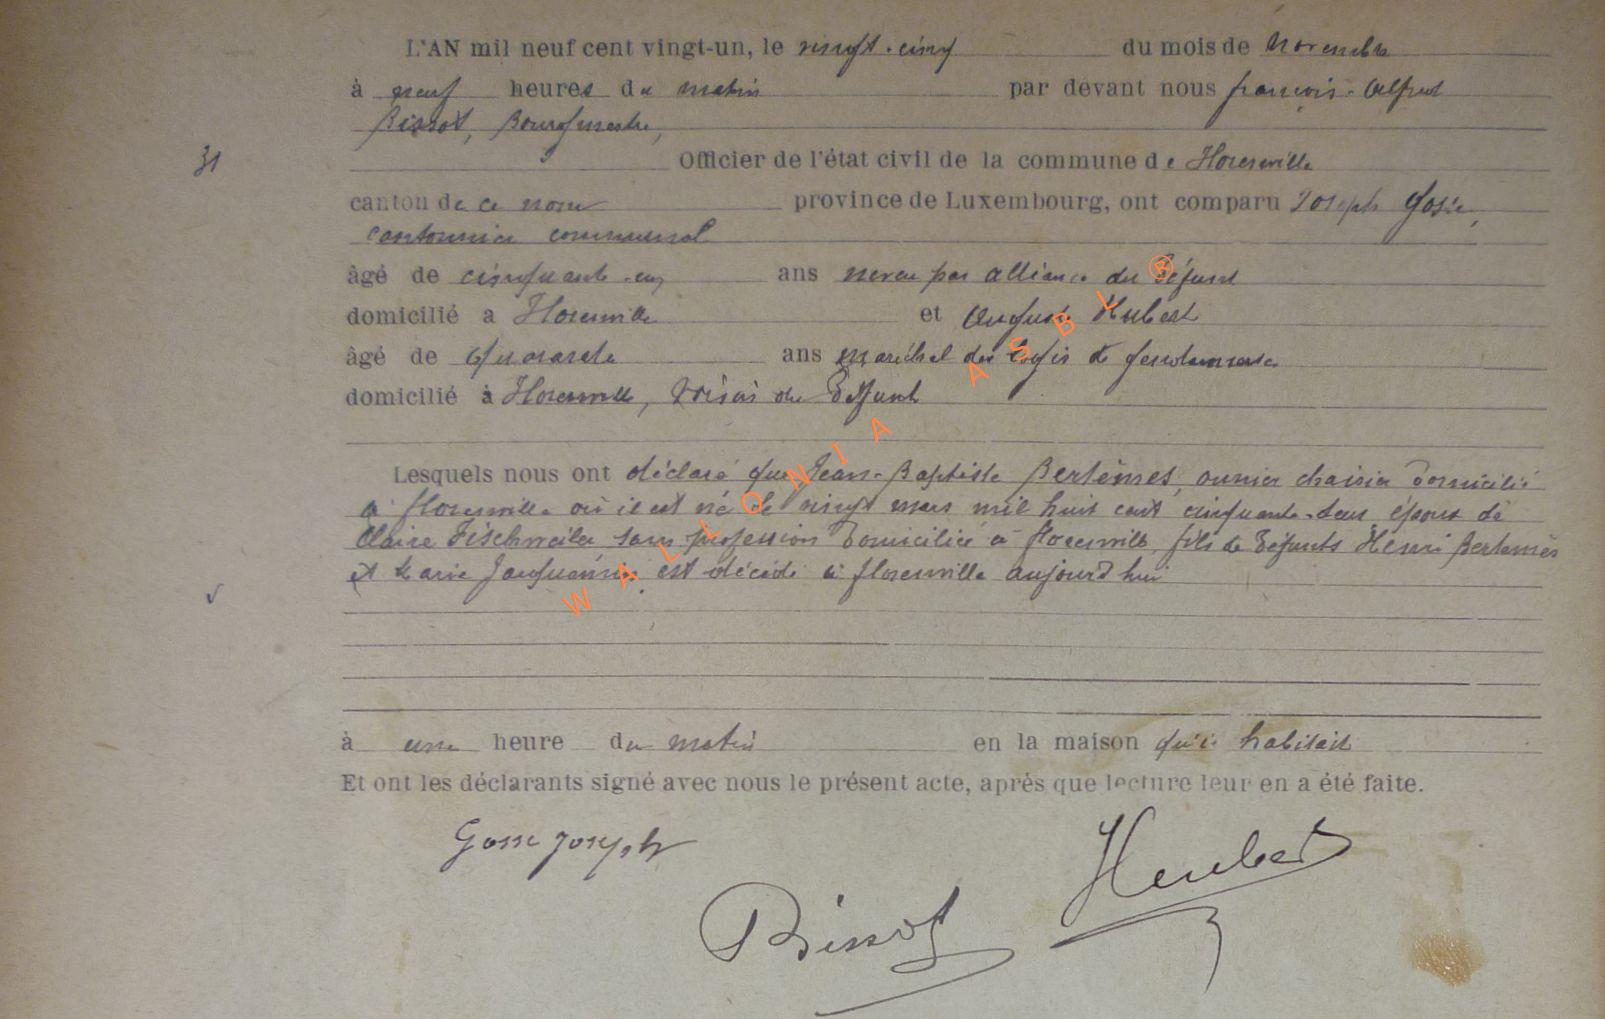 L'AN mil neuf cent vingt-un, le vingt-cinq du mois de novembre
à neuf heures du matin par devant nous françois-Alfred
Bissot, Bourgmestre,
31 Officier de l'état civil de la commune de Florenville
canton de ce nom province de Luxembourg, ont comparu Joseph Gosse,
cantonnier communal
âgé de cinquante-un ans neveu par alliance du défunt
domicilié a Florenville et Auguste Hubert
âgé de quarante ans maréchal des logis de gendarmerie
domicilié à Florenville, voisin du défunt
Lesquels nous ont déclaré que Jean-Baptiste Bertèmes, ouvrier chaisier domicilié
à florenville où il est né le vingt mars mil huit cent cinquante-deux époux de
Claire Fischweiler sans profession domiciliée à florenville, fils de défunts Henri Bertemès
et Marie est décédé à florenville aujourd'hui
à une heure du matin en la maison qu'il habitait
Et ont les déclarants signé avec nous le présent acte, après que lecture leur en a été faite.
Gosse Joseph
Hubert
Bissot
WALLONIA ASBL ®